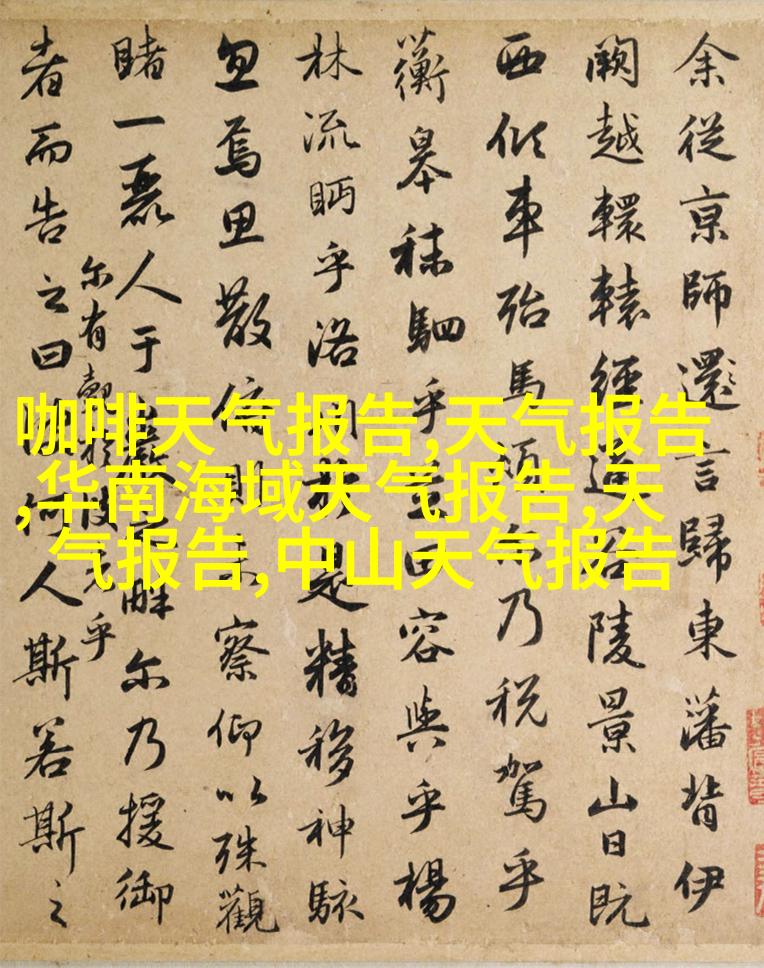 咖啡天气报告,天气报告
,华南海域天气报告,天
气报告,中山天气报告
余從京師還言歸東藩背伊
闕越轘轅經通谷陵景山日既
西傾車殆馬煩尔乃税駕乎
蘅皋秣駟乎芝田容與乎楊
林流眄乎洛川於是精移神駭
忽焉思散俯則未察仰以殊觀
睹一麗人于巖之畔尔乃援御
者而告之曰彼何人斯若斯之
尔有覿於彼者乎